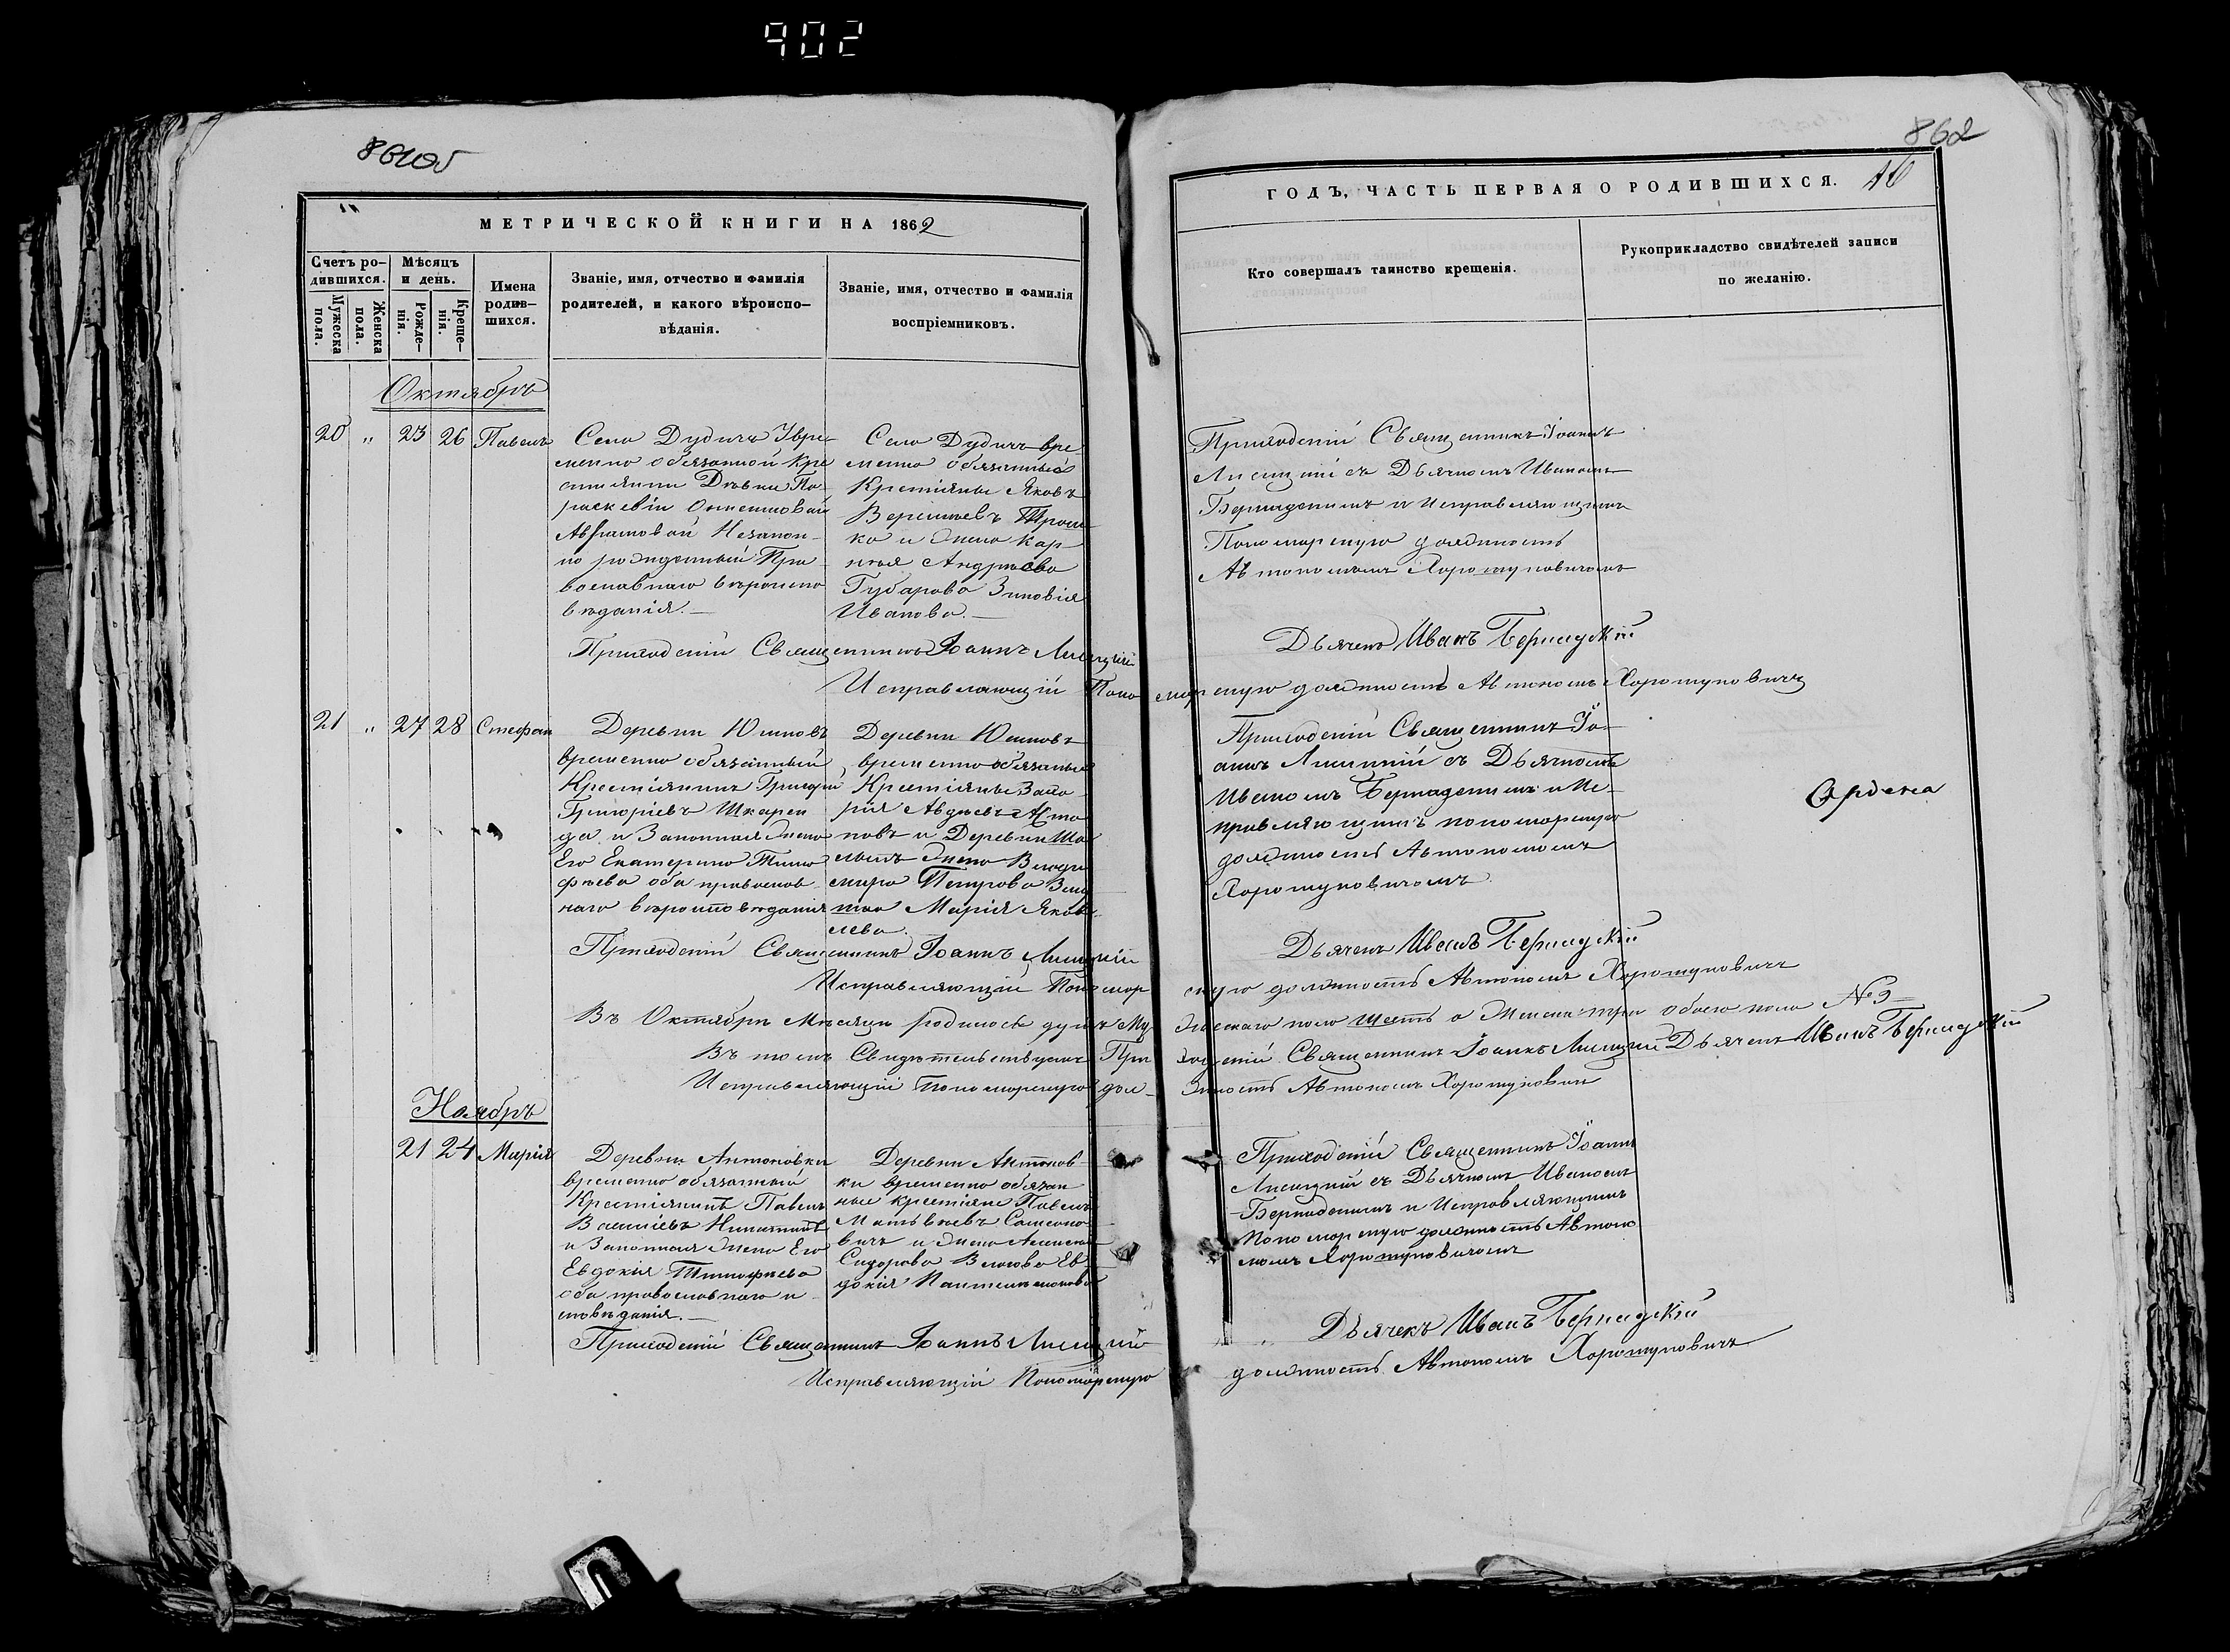 902
861об
862
МЕТРИЧЕСКОЙ КНИГИ НА 1862
Счетъ ро-
дившихся.
Мужеска
пола.
Женска
пола.
Мѣсяцъ
и день.
Рожде-
нія.
Креще-
нія.
Имена
родив-
шихся.
Званіе, имя, отчество и фамилія
родителей, и какого вѣроиспо-
вѣданія.
Званіе, имя, отчество и фамилія
воспріемниковъ.
ГОДЪ, ЧАСТЬ ПЕРВАЯ О РОДИВШИХСЯ. 16
Кто совершалъ таинство крещенія.
Рукоприкладство свидѣтелей записи
по желанію.
Октябрь
20 " 23 26 Павелъ
Села Дудичъ
менно обязанной Кре
Дѣвки Па-
раскевіи
Авраамовой Незакон-
но рожденный Пра
вославнаго вѣроиспо
вѣданія.
Село Дудичъ вре
менно обязанные
Крестіяны Яковъ
и жена
Андреева
Губарова Зиновія
Иванова.
Приходскій Священникъ Іоаннъ
Лисицкій съ Дьячкомъ Иваномъ
Бернадскимъ и Исправляющимъ
Пономарскую должность
Автономомъ Хорошуновичомъ
Приходскій Священникъ Іоаннъ Лисицкій
Дьячекъ Иванъ Бернадскій
Исправляющій Пономарскую должность Автономъ Хорошуновичъ
21 " 27 28 Стефан
Деревни
временно обязанный
Крестіянинъ Григорій
Григоріевъ
и Законная жена
Его Екатерина Тимо
фѣева оба православ
наго вѣроисповѣданія
Деревни
временно обязаные
Крестіяны
Авдѣевъ
и Деревни
жена
Петрова
Марія Яков
лева.
Приходскій Священникъ Іо-
аннъ Лисицкій съ Дьячкомъ
Иваномъ Бернадскимъ и Ис-
правляющимъ пономарскую
должность Автономомъ
Хорошуновичомъ
Приходскій Священникъ Іоаннъ Лисицкій
Дьячекъ Иванъ Бернадскій
Исправляющій Пономарскую должность Автономъ Хорошуновичъ
Въ Октябрѣ Мѣсяцѣ родилось душъ Мужескаго пола шесть а Женска три обоего пола № 9
Въ томъ Свидѣтельствуемъ Приходскій Священникъ Іоаннъ Лисицкій Дьячекъ Иванъ Бернадскій
Исправляющій пономарскую должность Автономъ Хорошунович
Ноябрь
21 24 Марія
Деревни Антоновки
временно обязанный
Крестіянинъ Павелъ
Василіевъ
и Законная жена Его
Евдокія Тимофѣева
оба православнаго и
сповѣданія.
Деревни Антонов-
ки временно обязан
ные крестіяне Павелъ
Матвѣевъ
и жена
Сидорова Ев
докія Пантелемонова
Приходскій Священникъ Іоаннъ
Лисицкій съ Дьячкомъ Иваномъ
Бернадскимъ и Исправляющимъ
пономарскую должность Автоно
момъ Хорошуновичомъ
Приходскій Священникъ Іоаннъ Лисицкій
Дьячекъ Иванъ Бернадскій
Исправляющій Пономарскую
должность Автономъ Хорошуновичъ